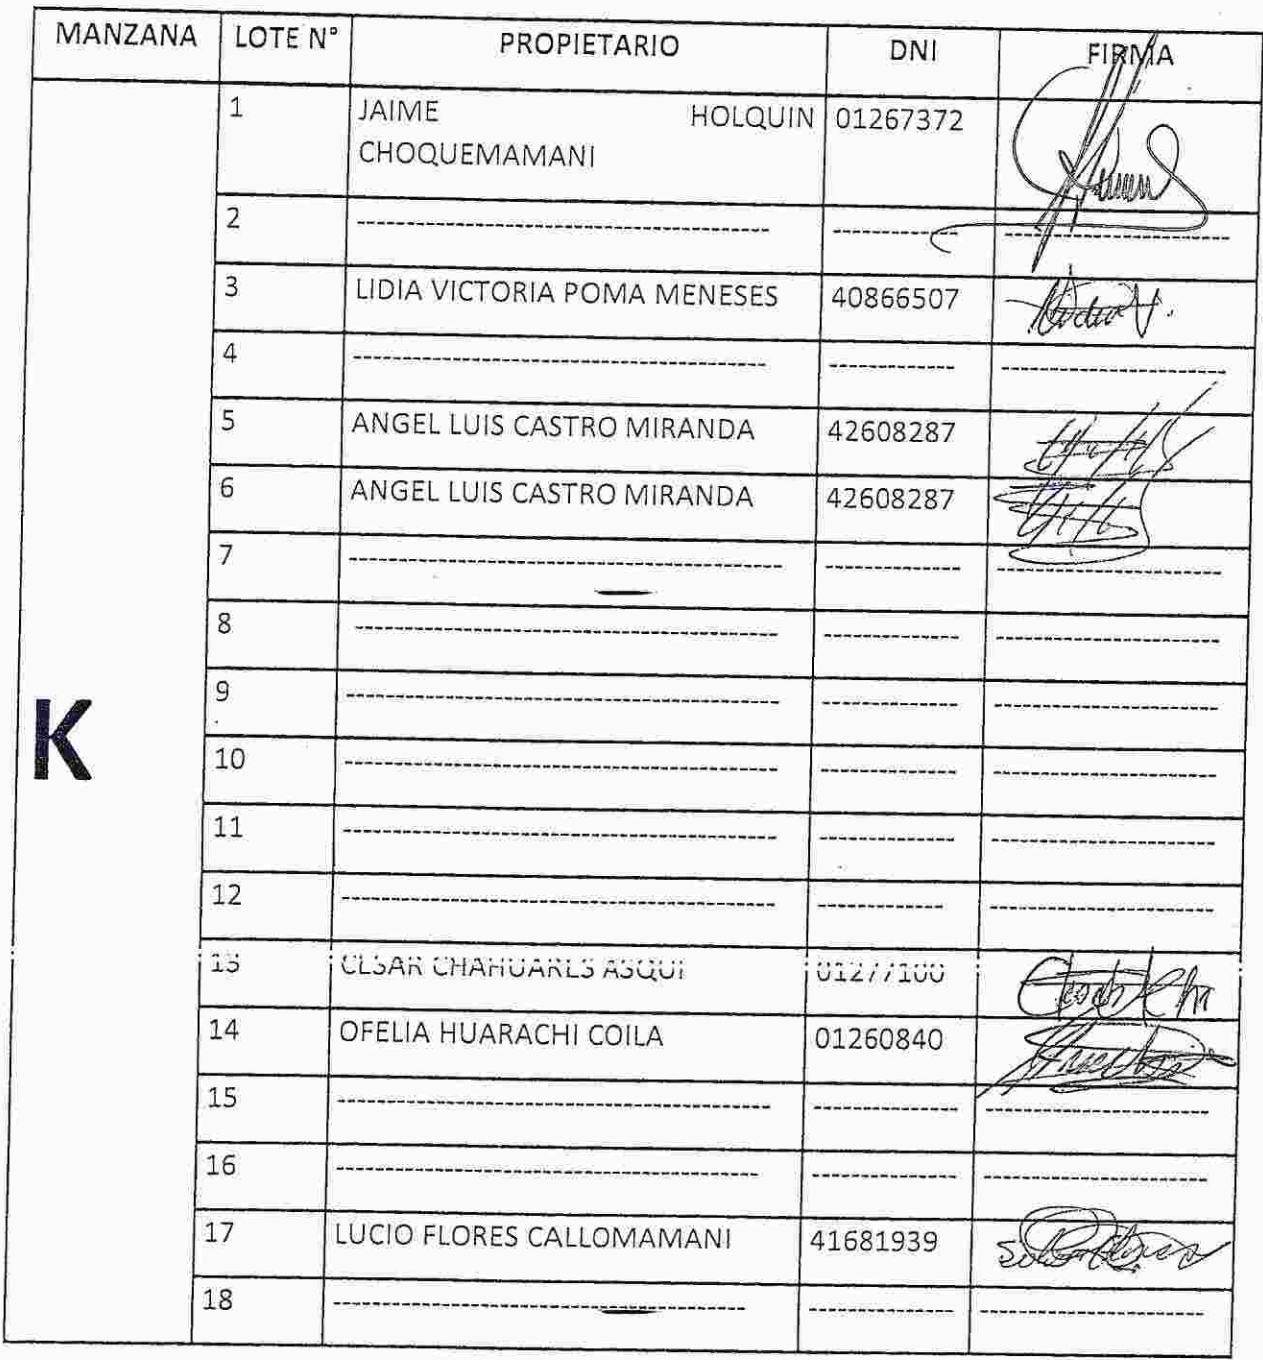 MANZANA LOTE N° PROPIETARIO DNI FIRMA
1 JAIME HOLQUIN 01267372
CHOQUEMAMANI
2 ---------- ---------- ----------
3 LIDIA VICTORIA POMA MENESES 40866507
4 ---------- ---------- ----------
5 ANGEL LUIS CASTRO MIRANDA 42608287
6 ANGEL LUIS CASTRO MIRANDA 42608287
7 ---------- ---------- ----------
8 ---------- ---------- ----------
9 ---------- ---------- ----------
K
10 ---------- ---------- ----------
11 ---------- ---------- ----------
12 ---------- ---------- ----------
13 CESAR CHAHUARES ASQUI 01277100
14 OFELIA HUARACHI COILA 01260840
15 ---------- ---------- ----------
16 ---------- ---------- ----------
17 LUCIO FLORES CALLOMAMANI 41681939
18 ---------- ---------- ----------